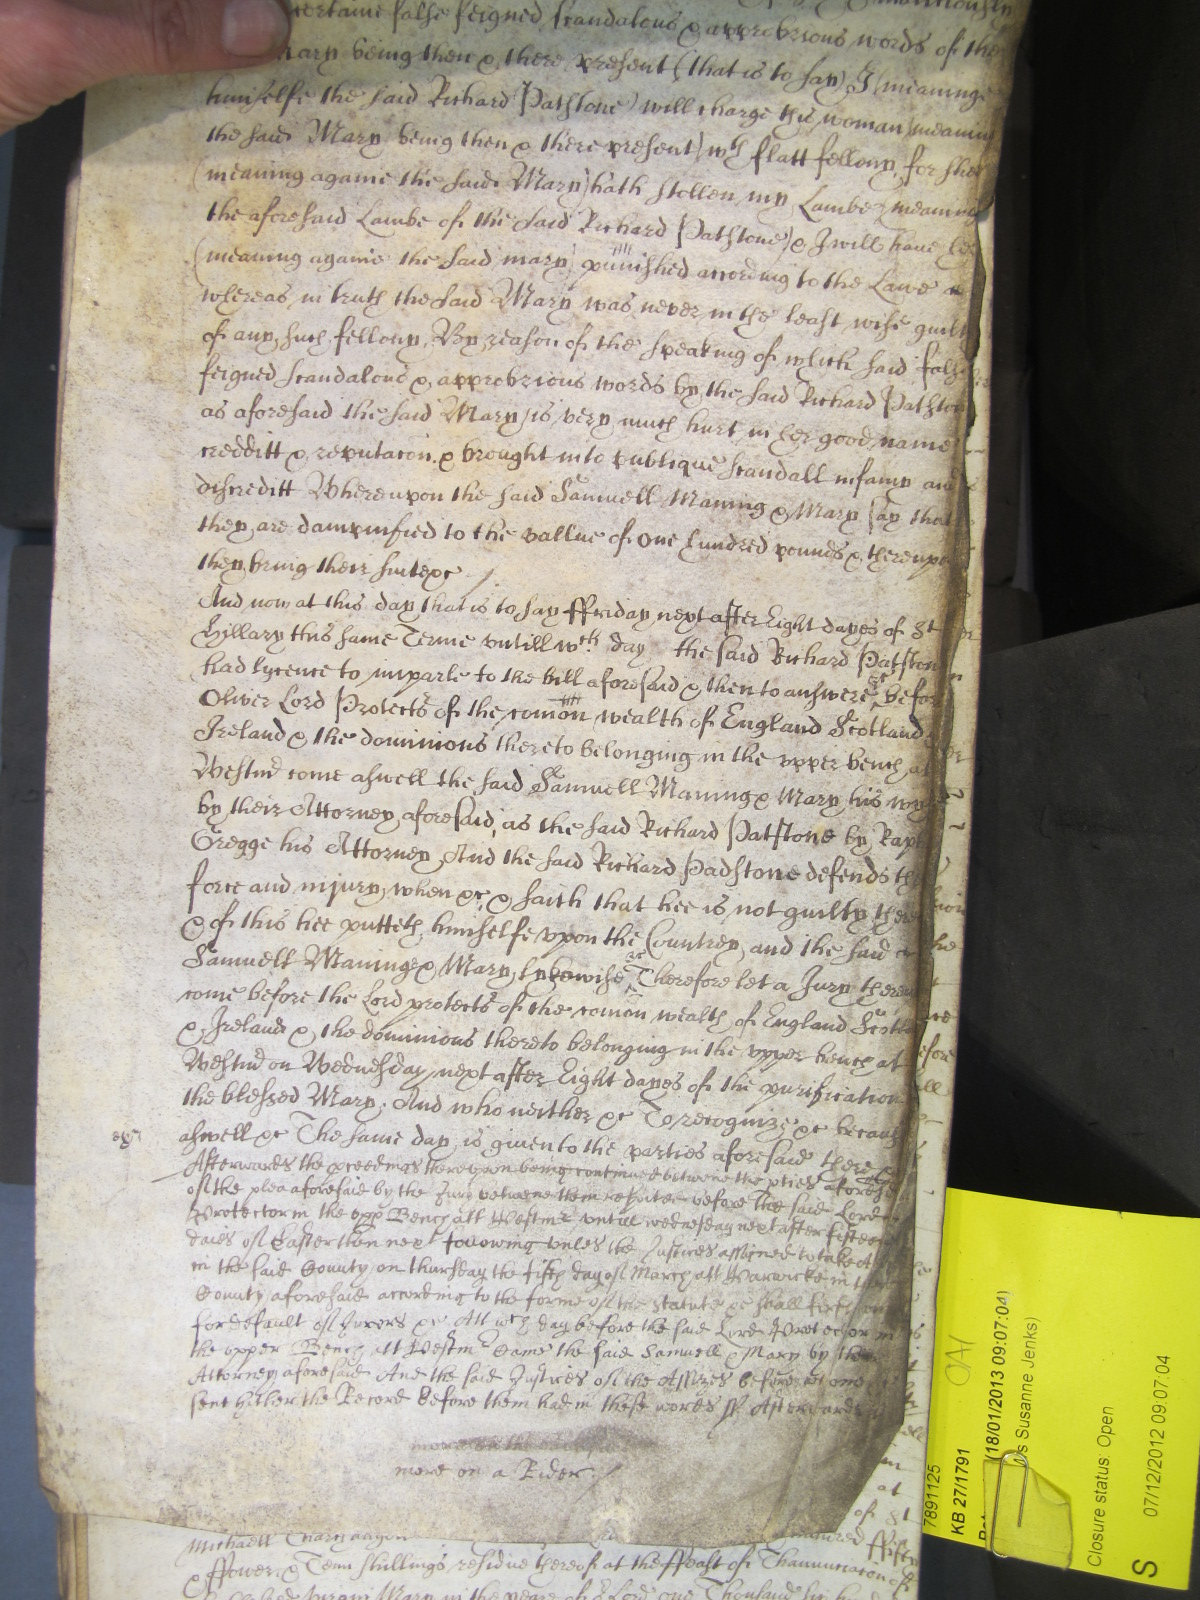 false feigned scandalous & approbrious words of the
Mary being then & there present (that is to say) I (meaninge
himselfe the said Richard Patstone) will charge this woman (meaning
the said Mary being then & there present) wth flatt fellony, for shee
(meaning againe the said Mary) hath stollen my Lambe (meaning
the aforesaid Lambe of the said Richard Patstone) & I will have her
(meaning againe the said mary) punished according to the Lawe
whereas in truth the said Mary was never in the least wise guilty
of any such fellony, By reason of the speaking of which said false
feigned scandalous & approbrious words by the said Richard Patston
as aforesaid the said Mary is very much hurt in her good name
credditt & reputacon & brought into publique scandall infamy and
discreditt Whereupon the said Samuell Maning & Mary say that
they are dampnified to the vallue of one hundred pounds & thereupon
they bring their suite &c
And now at this day that is to say ffriday next after Eight dayes of St
Hillary this same Terme untill wch day the said Richard Patston
had lycence to imparle to the bill aforesaid & then to answere &c before
Oliver Lord Protectr of the comon wealth of England Scotland
Ireland & the dominions thereto belonging in the upper bench at
Westmr come aswell the said Samuell Maning & Mary his wife
by their Attorney aforesaid, as the said Richard Patstone by
Gregge his Attorney And the said Richard Padstone defends the
force and injury when &c & saith that hee is not guilty thereof
& of this hee putteth himselfe upon the Countrey, and the said
Samuell Maning & Mary lykewise &c Therefore let a Jury thereupon
come before the Lord protectr of the comon wealth of England Scotland
& Ireland & the dominions thereto belonging in the upper bench at
Westmr on Wednesday next after Eight dayes of the purification
the blessed Mary, And who neither &c To recognize &c because
aswell &c The same day is given to the parties aforesaid there &c
Afterwards the proceedings thereupon being continued betweene the pties aforesd
of the plea aforesaid by the Jury betweene them respited before the said Lord
Protector in the upp Bench att Westmr untill wednesday next after fifteene
daies of Easter then next following unles the Justices assigned to take
in the said County on thursday the fifth day of March att Warwicke in the
County aforesaid according to the forme of the statute &c shall first come
for default of Jurors &c. Att wch day before the said Lord Protector in
the upper Bench att Westmr Came the said Samuell & Mary by their
Attorney aforesaid And the said Justices of the Assizes before
sent hither the Record before them had in these words ss. Afterwards
more on a Rider.
Michaell
& ffower & Tenn shillings residue thereof at the ffeast of Thannunciacon of
Mary in the yeare of or Lord one Thousand
7891125
KB 27/1791
(18/01/2013 09:07:04)
Susanne Jenks)
Closure status: Open
07/12/2012 09:07:04
S